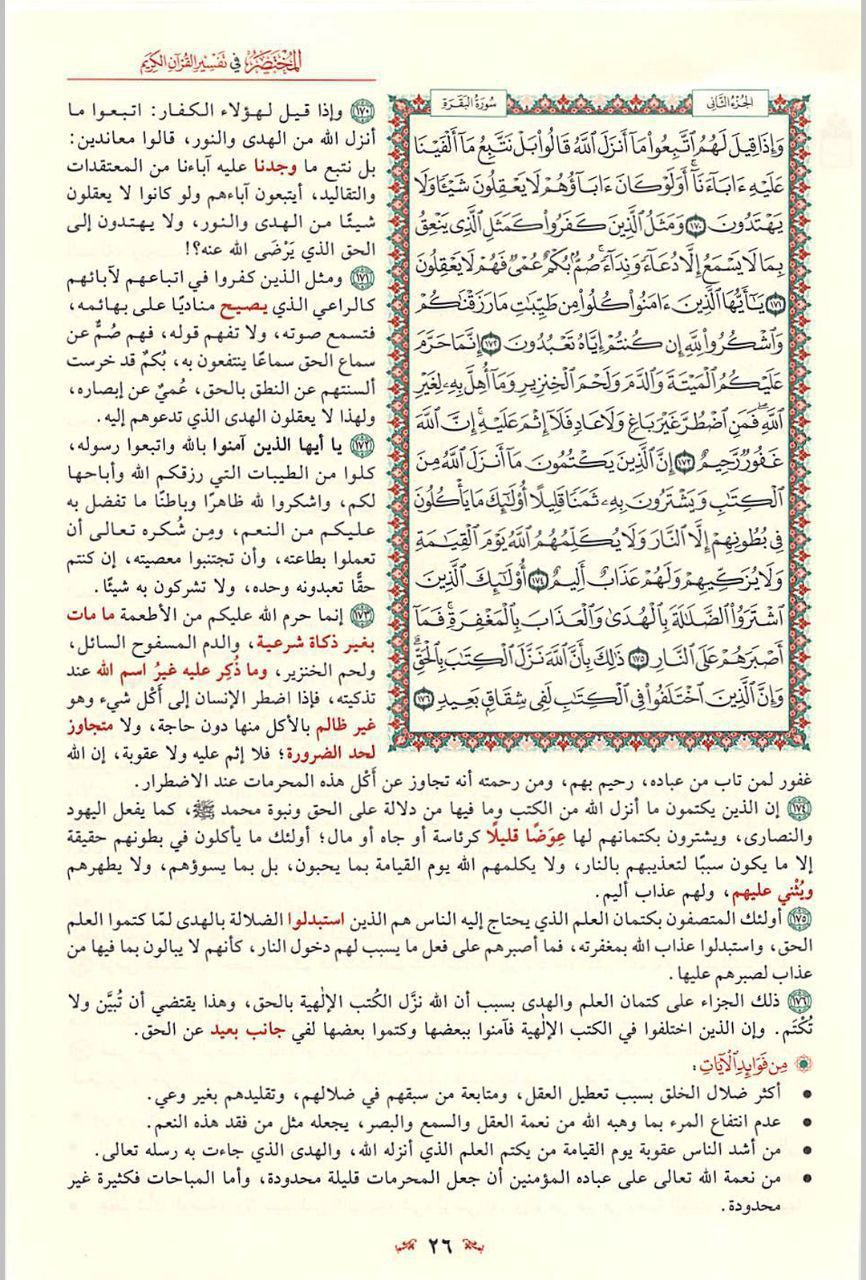 المُخْتَصَرُ فِي تَفْسِيرِ القُرْآنِ الكَرِيمِ
الجُزْءُ الثَّانِي
سُورَةُ البَقَرَةِ
وَإِذَا قِيلَ لَهُمُ ٱتَّبِعُوا۟ مَآ أَنزَلَ ٱللَّهُ قَالُوا۟ بَلْ نَتَّبِعُ مَآ أَلْفَيْنَا
عَلَيْهِ ءَابَآءَنَآۗ أَوَلَوْ كَانَ ءَابَآؤُهُمْ لَا يَعْقِلُونَ شَيْـًٔا وَلَا
يَهْتَدُونَ ١٧٠ وَمَثَلُ ٱلَّذِينَ كَفَرُوا۟ كَمَثَلِ ٱلَّذِى يَنْعِقُ
بِمَا لَا يَسْمَعُ إِلَّا دُعَآءً وَنِدَآءًۚ صُمٌّۢ بُكْمٌ عُمْىٌ فَهُمْ لَا يَعْقِلُونَ
١٧١ يَـٰٓأَيُّهَا ٱلَّذِينَ ءَامَنُوا۟ كُلُوا۟ مِن طَيِّبَـٰتِ مَا رَزَقْنَـٰكُمْ
وَٱشْكُرُوا۟ لِلَّهِ إِن كُنتُمْ إِيَّاهُ تَعْبُدُونَ ١٧٢ إِنَّمَا حَرَّمَ
عَلَيْكُمُ ٱلْمَيْتَةَ وَٱلدَّمَ وَلَحْمَ ٱلْخِنزِيرِ وَمَآ أُهِلَّ بِهِۦ لِغَيْرِ
ٱللَّهِۖ فَمَنِ ٱضْطُرَّ غَيْرَ بَاغٍ وَلَا عَادٍ فَلَآ إِثْمَ عَلَيْهِۚ إِنَّ ٱللَّهَ
غَفُورٌ رَّحِيمٌ ١٧٣ إِنَّ ٱلَّذِينَ يَكْتُمُونَ مَآ أَنزَلَ ٱللَّهُ مِنَ
ٱلْكِتَـٰبِ وَيَشْتَرُونَ بِهِۦ ثَمَنًا قَلِيلًا أُو۟لَـٰٓئِكَ مَا يَأْكُلُونَ
فِى بُطُونِهِمْ إِلَّا ٱلنَّارَ وَلَا يُكَلِّمُهُمُ ٱللَّهُ يَوْمَ ٱلْقِيَـٰمَةِ
وَلَا يُزَكِّيهِمْ وَلَهُمْ عَذَابٌ أَلِيمٌ ١٧٤ أُو۟لَـٰٓئِكَ ٱلَّذِينَ
ٱشْتَرَوُا۟ ٱلضَّلَـٰلَةَ بِٱلْهُدَىٰ وَٱلْعَذَابَ بِٱلْمَغْفِرَةِۚ فَمَآ
أَصْبَرَهُمْ عَلَى ٱلنَّارِ ١٧٥ ذَٰلِكَ بِأَنَّ ٱللَّهَ نَزَّلَ ٱلْكِتَـٰبَ بِٱلْحَقِّۗ
وَإِنَّ ٱلَّذِينَ ٱخْتَلَفُوا۟ فِى ٱلْكِتَـٰبِ لَفِى شِقَاقٍۭ بَعِيدٍ ١٧٦
١٧٠ وإذا قيل لهؤلاء الكفار: اتبعوا ما
أنزل الله من الهدى والنور، قالوا معاندين:
بل نتبع ما وجدنا عليه آباءنا من المعتقدات
والتقاليد، أيتبعون آباءهم ولو كانوا لا يعقلون
شيئًا من الهدى والنور، ولا يهتدون إلى
الحق الذي يَرْضَى الله عنه؟!
١٧١ ومثل الذين كفروا في اتباعهم لآبائهم
كالراعي الذي يصيح مناديًا على بهائمه،
فتسمع صوته، ولا تفهم قوله، فهم صُمٌّ عن
سماع الحق سماعًا ينتفعون به، بُكمٌ قد خرست
ألسنتهم عن النطق بالحق، عُميٌ عن إبصاره،
ولهذا لا يعقلون الهدى الذي تدعوهم إليه.
١٧٢ يا أيها الذين آمنوا بالله واتبعوا رسوله،
كلوا من الطيبات التي رزقكم الله وأباحها
لكم، واشكروا لله ظاهرًا وباطنًا ما تفضل به
عليكم من النعم، ومِن شُكره تعالى أن
تعملوا بطاعته، وأن تجتنبوا معصيته، إن كنتم
حقًّا تعبدونه وحده، ولا تشركون به شيئًا.
١٧٣ إنما حرم الله عليكم من الأطعمة ما مات
بغير ذكاة شرعية، والدم المسفوح السائل،
ولحم الخنزير، وما ذُكِر عليه غيرُ اسم الله عند
تذكيته، فإذا اضطر الإنسان إلى أَكْل شيء وهو
غير ظالم بالأكل منها دون حاجة، ولا متجاوز
لحد الضرورة؛ فلا إثم عليه ولا عقوبة، إن الله
غفور لمن تاب من عباده، رحيم بهم، ومن رحمته أنه تجاوز عن أَكْل هذه المحرمات عند الاضطرار.
١٧٤ إن الذين يكتمون ما أنزل الله من الكتب وما فيها من دلالة على الحق ونبوة محمد ﷺ، كما يفعل اليهود
والنصارى، ويشترون بكتمانهم لها عِوَضًا قليلًا كرئاسة أو جاه أو مال؛ أولئك ما يأكلون في بطونهم حقيقة
إلا ما يكون سببًا لتعذيبهم بالنار، ولا يكلمهم الله يوم القيامة بما يحبون، بل بما يسوؤهم، ولا يطهرهم
ويُثْني عليهم، ولهم عذاب أليم.
١٧٥ أولئك المتصفون بكتمان العلم الذي يحتاج إليه الناس هم الذين استبدلوا الضلالة بالهدى لمّا كتموا العلم
الحق، واستبدلوا عذاب الله بمغفرته، فما أصبرهم على فعل ما يسبب لهم دخول النار، كأنهم لا يبالون بما فيها من
عذاب لصبرهم عليها.
١٧٦ ذلك الجزاء على كتمان العلم والهدى بسبب أن الله نزَّل الكُتب الإلٰهية بالحق، وهذا يقتضي أن تُبيَّن ولا
تُكْتَم. وإن الذين اختلفوا في الكتب الإلٰهية فآمنوا ببعضها وكتموا بعضها لفي جانب بعيد عن الحق.
مِن فَوَائِدِ الْآيَاتِ:
• أكثر ضلال الخلق بسبب تعطيل العقل، ومتابعة من سبقهم في ضلالهم، وتقليدهم بغير وعي.
• عدم انتفاع المرء بما وهبه الله من نعمة العقل والسمع والبصر، يجعله مثل من فقد هذه النعم.
• من أشد الناس عقوبة يوم القيامة من يكتم العلم الذي أنزله الله، والهدى الذي جاءت به رسله تعالى.
• من نعمة الله تعالى على عباده المؤمنين أن جعل المحرمات قليلة محدودة، وأما المباحات فكثيرة غير
محدودة.
٢٦